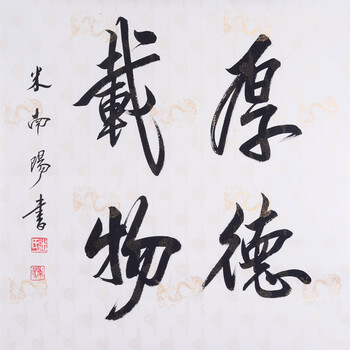 厚德
載物
米南陽書